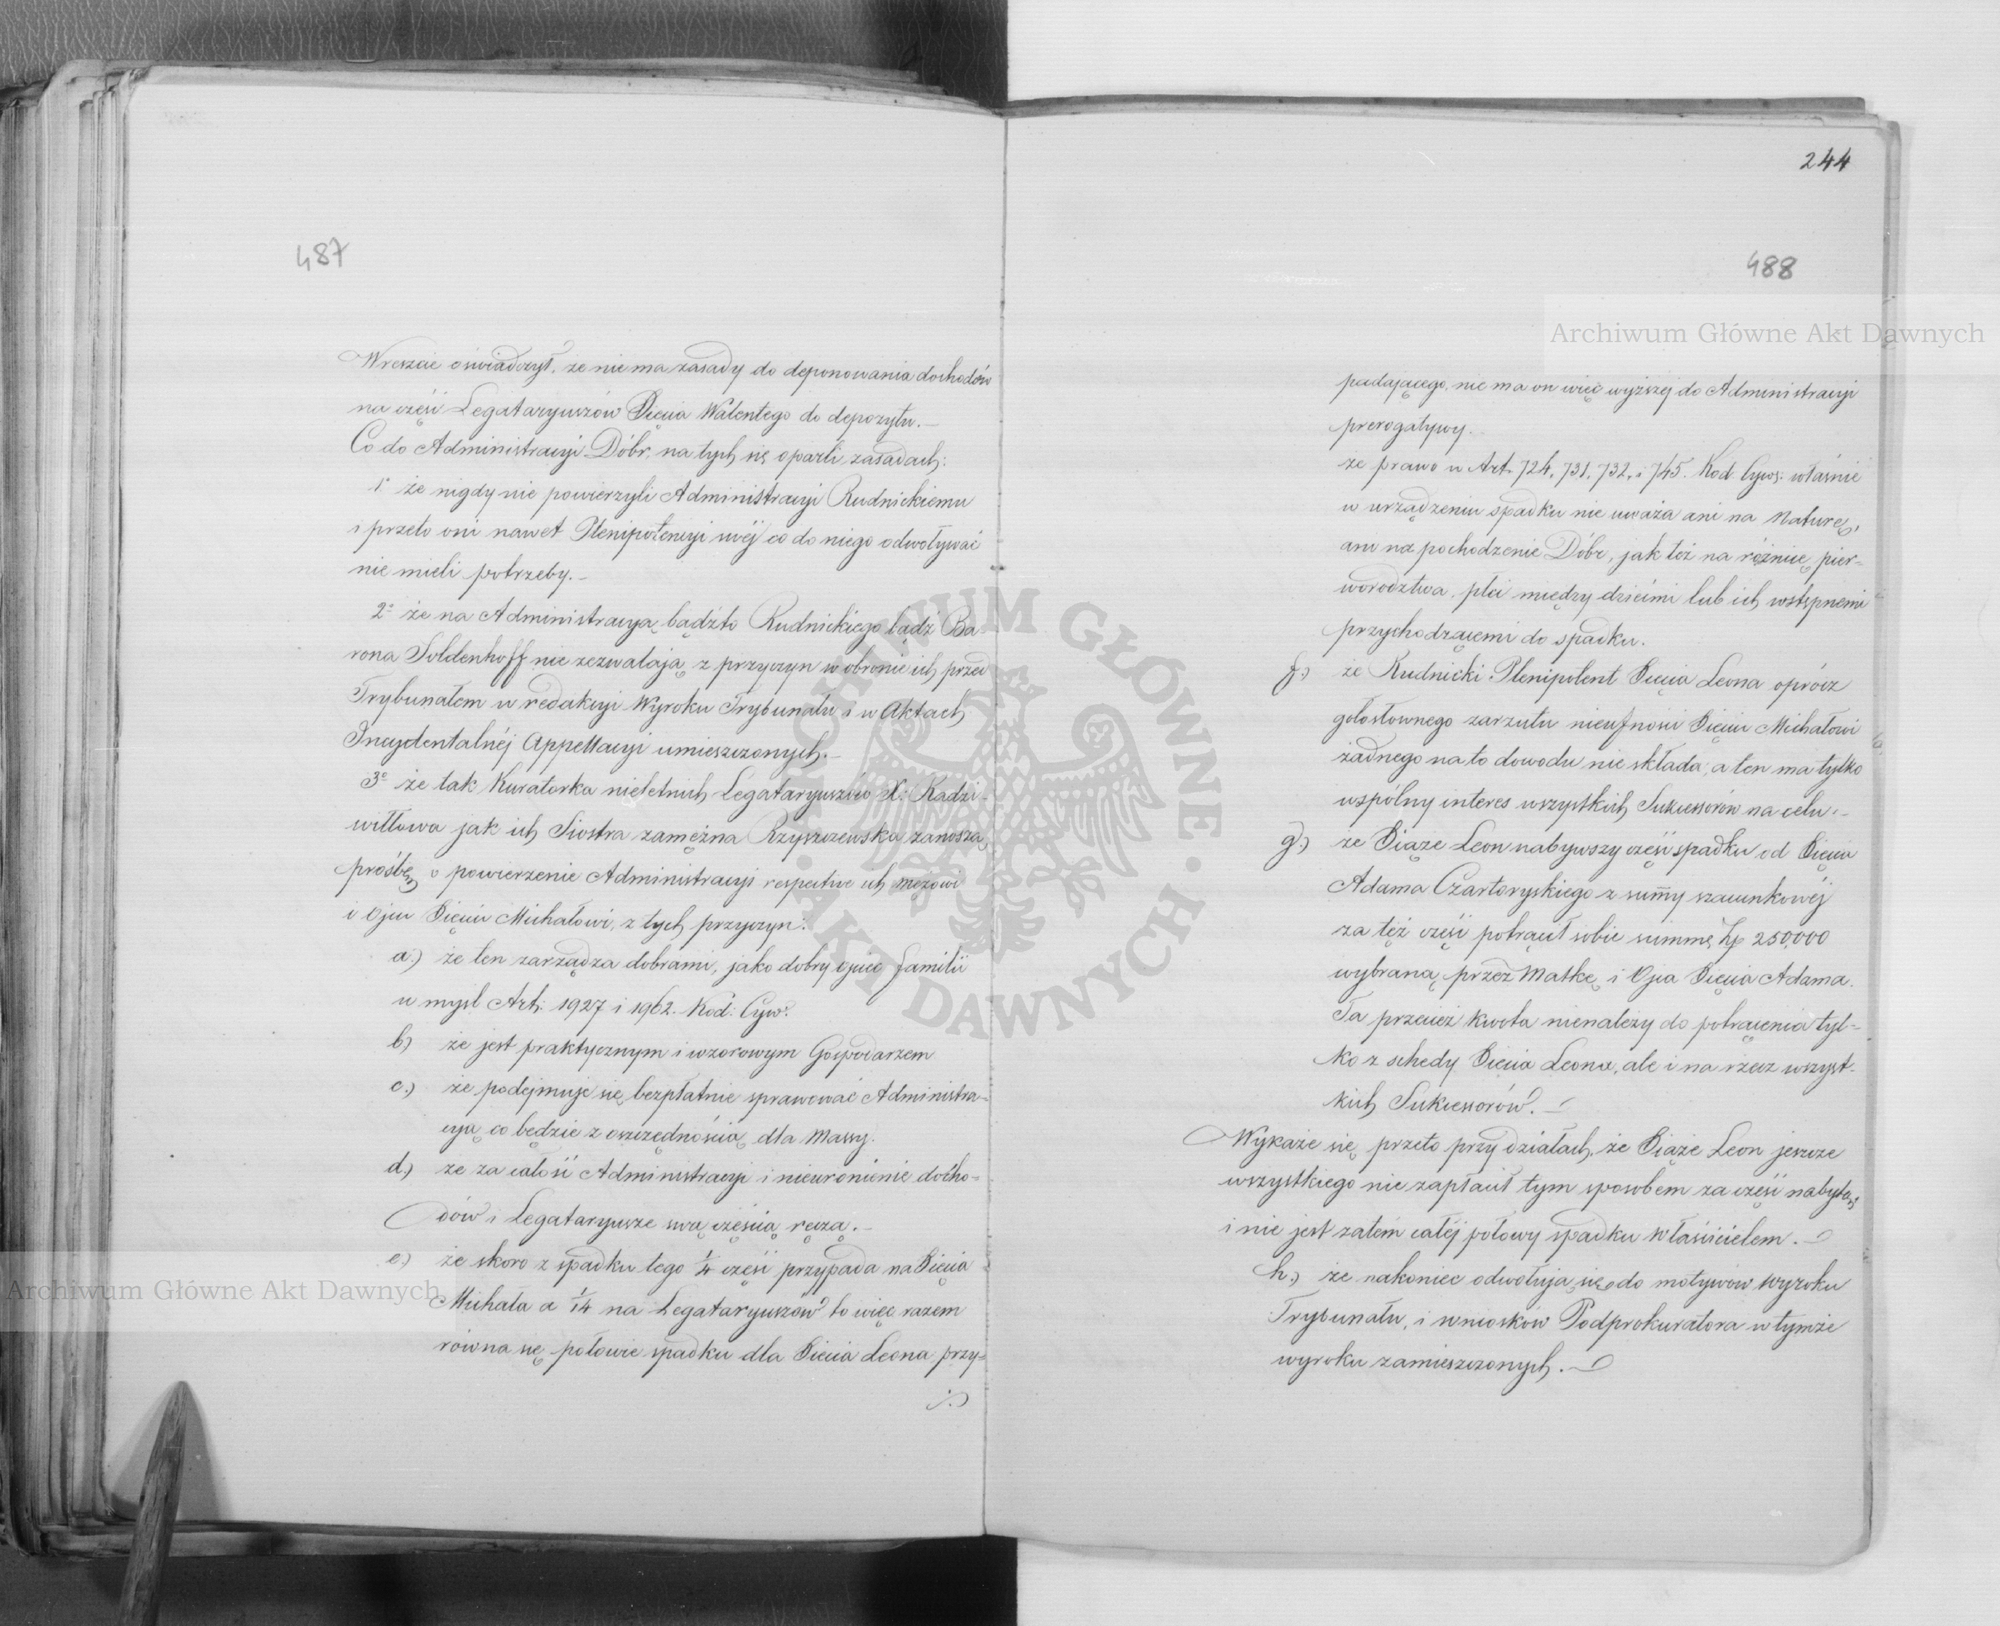 487
Wreszcie oświadczył, że nie ma zasady do deponowania dochodów
na części Legataryuszów Xięcia Walentego do depozytu.–
Co do Administracyi Dóbr, na tych się oparli zasadach:
1° że nigdy nie powierzyli Administracyi Rudnickiemu
i przeto oni nawet Plenipotencyi swéj co do niego odwoływać
nie mieli potrzeby.–
2° że na Administracyą bądźto Rudnickiego bądź Ba-
rona Soldenhoff nie zezwalają z przyczyn w obronie ich przed
Trybunałem w redakcyi Wyroku Trybunału i w Aktach
Incydentalnéj Appellacyi umieszczonych.–
3° że tak Kuratorka nieletnich Legataryuszów X: Radzi-
wiłłowa jak ich Siostra zamężna Rzyszczewska zanoszą
prośbę o powierzenie Administracyi respective ich mężowi
i Ojcu Xięciu Michałowi, z tych przyczyn:
a.) że ten zarządza dobrami, jako dobry ojciec familii
w myśl Art: 1927 i 1962. Kod: Cyw:
b) że jest praktycznym i wzorowym Gospodarzem
c.) że podejmuje się bezpłatnie sprawować Administra-
cyą co będzie z oszczędnością dla Massy.
d.) że za całość Administracyi i nieuronienie docho-
dów i Legataryusze swą częścią ręczą.–
e.) że skoro z spadku tego 1/4 część przypada na Xięcia
Michała a 1/4 na Legataryuszów to więc razem
równa się połowie spadku dla Xięcia Leona przy-
./.
244
488
padającego, nie ma on więc wyższéj do Administracyi
prerogatywy.
że prawo w Art. 724, 731, 732, i 745. Kod Cyw: właśnie
w urządzeniu spadku nie uważa ani na Naturę,
ani na pochodzenie Dóbr, jak też na różnicę pier-
worodztwa, płci między dziećmi lub ich wstępnemi
przychodzącemi do spadku.
f.) że Rudnicki Plenipotent Xięcia Leona oprócz
gołosłownego zarzutu nieufności Xięciu Michałowi
żadnego na to dowodu nie składa, a ten ma tylko
wspólny interes wszystkich Sukcessorów na celu.–
g.) że Xiąże Leon nabywszy część spadku od Xięcia
Adama Czartoryskiego z summy szacunkowéj
za też część potrącił sobie summę Zp 250,000
wybraną przez Matkę i Ojca Xięcia Adama.
Ta przecież kwota nienależy do potrącenia tyl-
ko z schedy Xięcia Leona, ale i na rzecz wszyst-
kich Sukcessorów.–
Wykaże się przeto przy działach, że Xiąże Leon jeszcze
wszystkiego nie zapłacił tym sposobem za część nabytą,
i nie jest zatém całéj połowy spadku Właścicielem.–
h.) że nakoniec odwołują się do motywów wyroku
Trybunału, i wniosków Podprokuratora w tymże
wyroku zamieszczonych.–
Archiwum Główne Akt Dawnych
Archiwum Główne Akt Dawnych
ARCHIWUM GŁÓWNE · AKT DAWNYCH ·